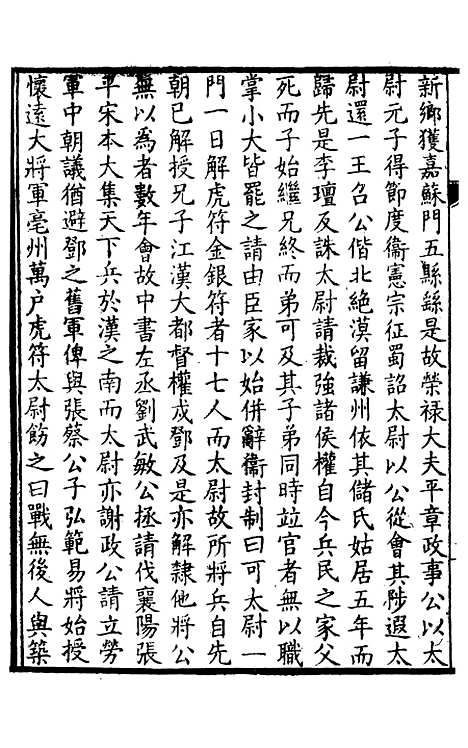 新鄉獲嘉蘇門五縣繇是故榮禄大夫平章政事公以太
尉元子得節度衞憲宗征蜀詔太尉以公從會其陟遐太
尉還一王召公偕北絶漠留謙州依其儲氏姑居五年而
歸先是李璮反誅太尉請裁強諸侯權自今兵民之家父
死而子始繼兄終而弟可及其子弟同時竝官者無以職
掌小大皆罷之請由臣家以始併辭衞封制曰可太尉一
門一日解虎符金銀符者十七人而太尉故所將兵自先
朝已解授兄子江漢大都督權戍鄧及是亦解隸他將公
無以爲者數年會故中書左丞劉武敏公拯請伐襄陽張
平宋本大集天下兵於漢之南而太尉亦謝政公請立勞
軍中朝議猶避鄧之舊軍俾與張蔡公子弘範易將始授
懷遠大將軍亳州萬户虎符太尉飭之曰戰無後人與築